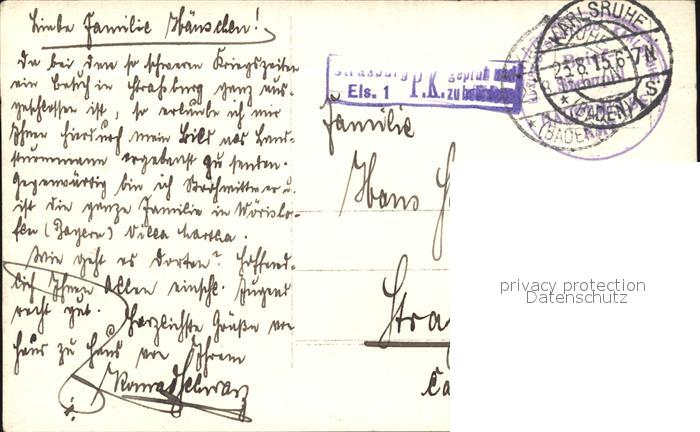 Liebe Familie Hänschen!
Da bei den so schweren Kriegszeiten
ein Besuch in Straßburg ganz aus-
geschlossen ist, so erlaube ich mir
Ihnen hierdurch mein Bild als Land-
sturmmann ergebenst zu senden.
Gegenwärtig bin ich Strohwittwer u.
ist die ganze Familie in Wörisho-
fen (Bayern) Villa Martha.
Wie geht es dorten? Hoffent-
lich Ihnen Allen einschl. Jugend
recht gut. Herzlichste Grüße von
Haus zu Haus von Ihrem
Konrad Schwarz
Strassburg
Els. 1 P.K. geprüft und
zu befördern
KARLSRUHE
25.8.15.6-7N
* (BADEN) *
Familie
Hans
Stra
privacy protection
Datenschutz